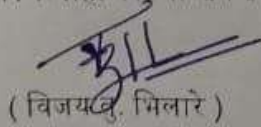 ( विजय खु. भिलारे )